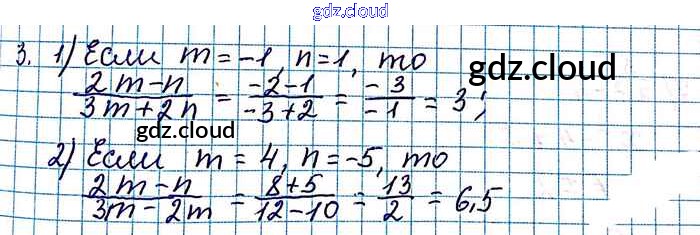 gdz.cloud
3. 1) Если m = -1, n = 1, то
gdz.cloud
2m-n/3m+2n = -2-1/-3+2 = -3/-1 = 3;
gdz.cloud
2) Если m = 4, n = -5, то
2m-n/3m-2m = 8+5/12-10 = 13/2 = 6,5